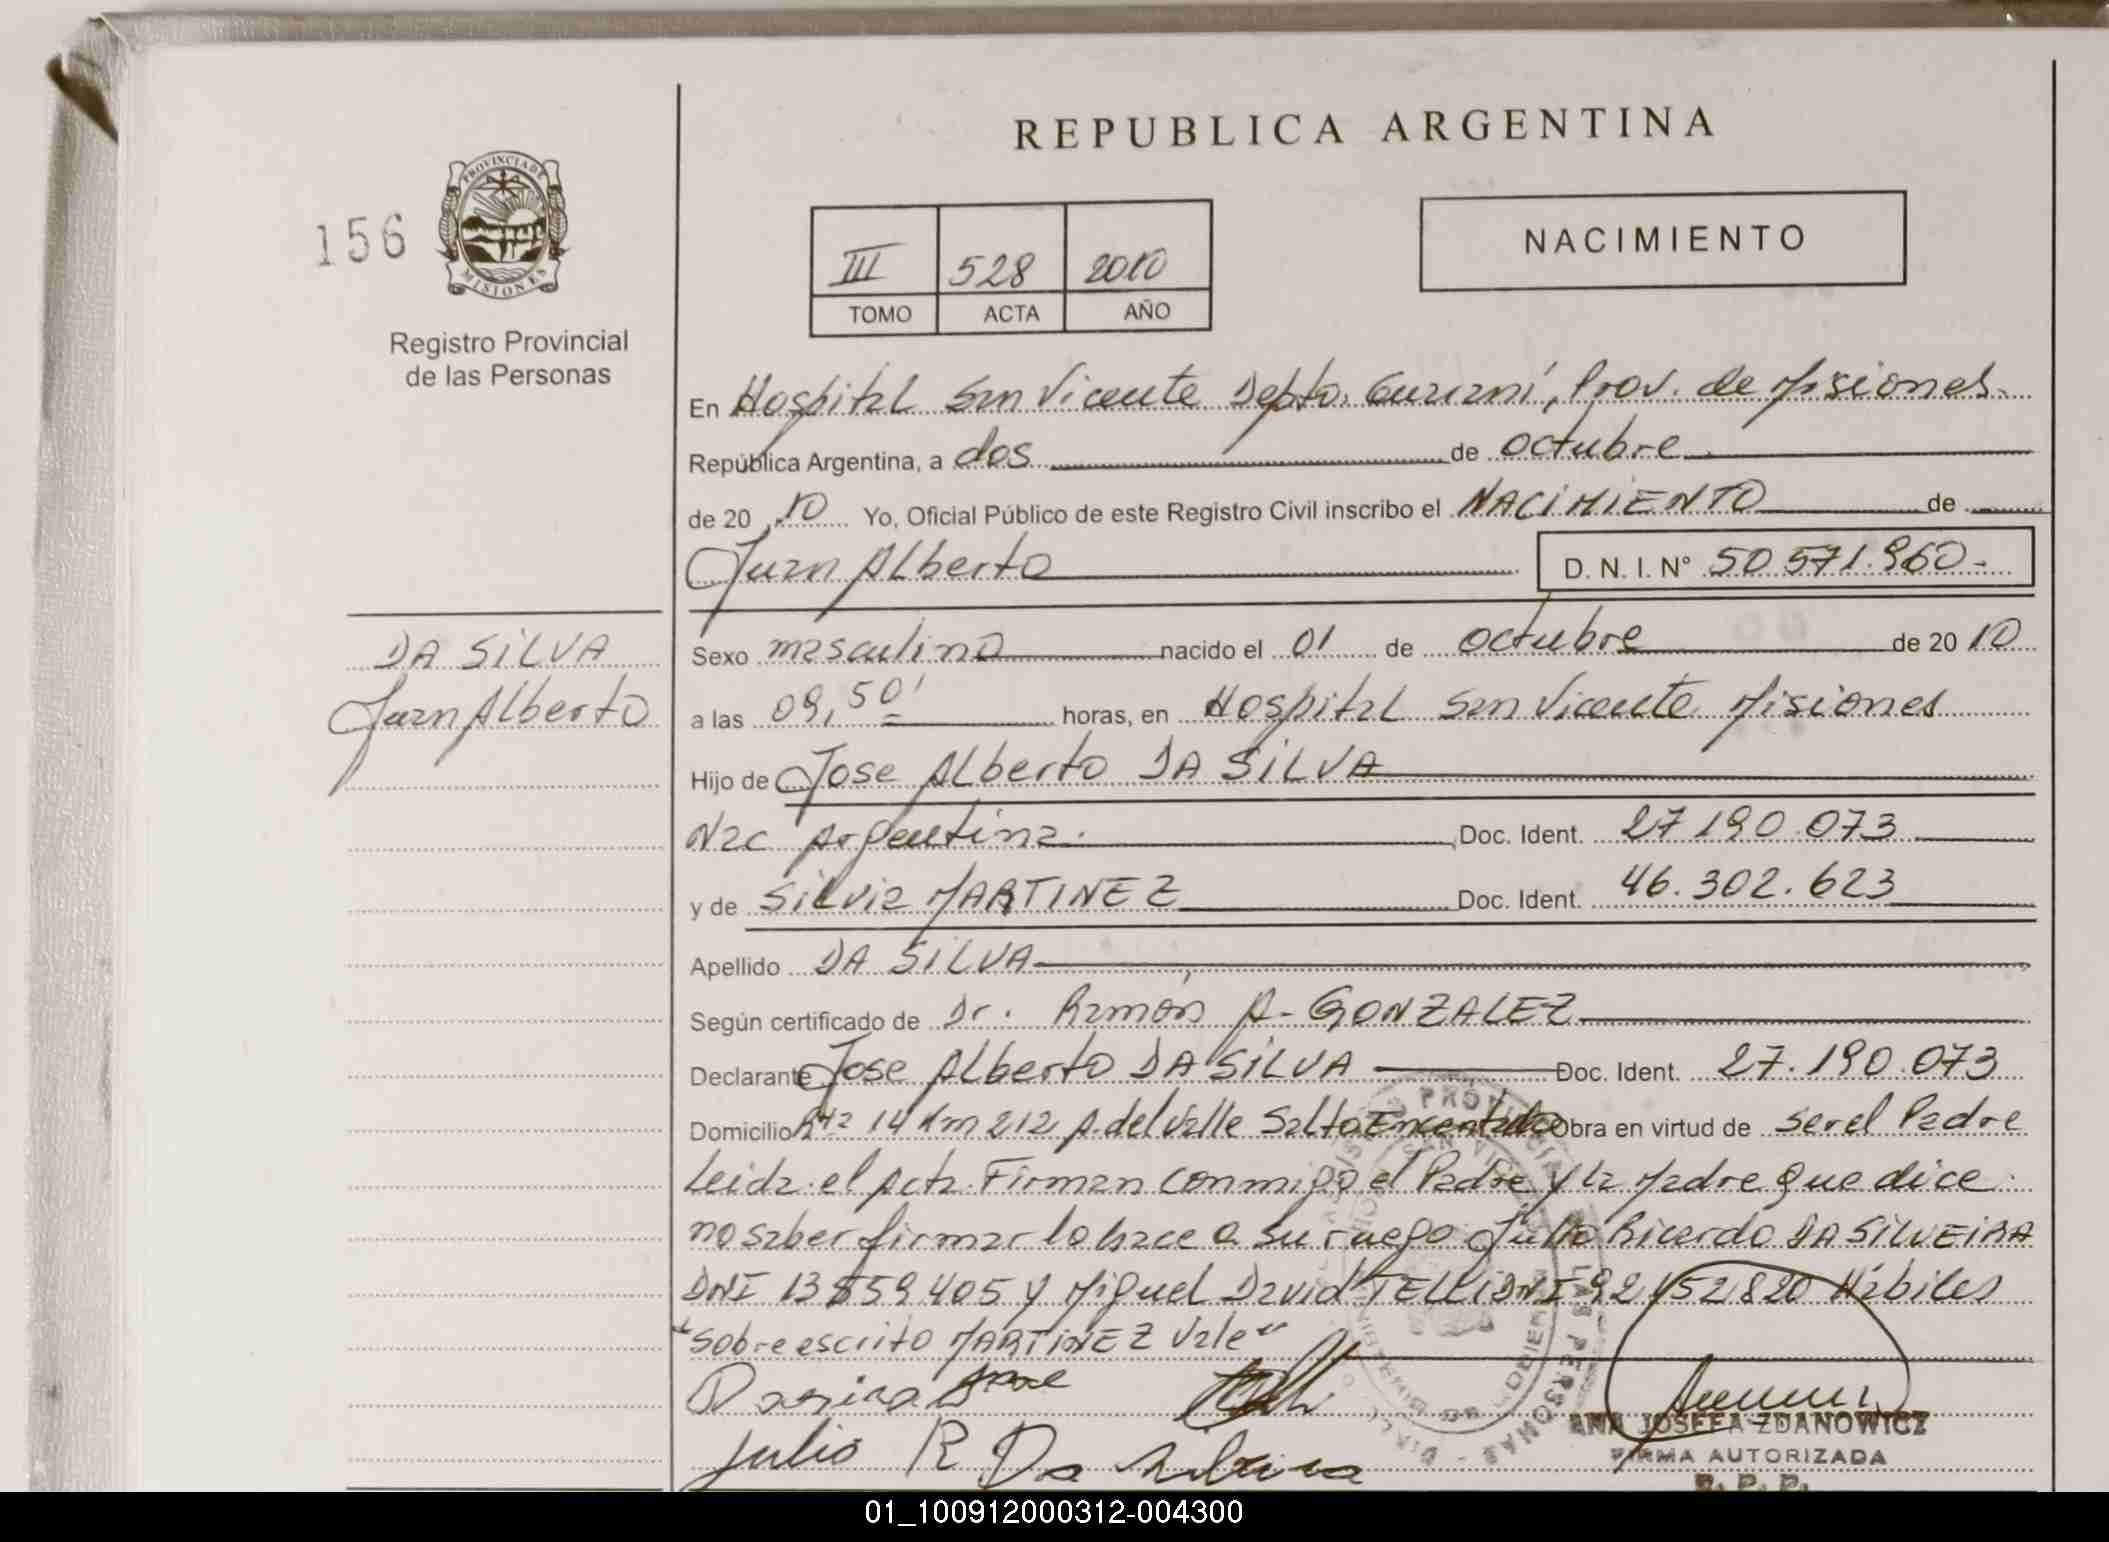 REPUBLICA ARGENTINA
156
PROVINCIA DE
MISIONES
Registro Provincial
de las Personas
III 528 2010
TOMO ACTA AÑO
NACIMIENTO
En Hospital San Vicente Depto. Guaraní, Prov. de Misiones.
República Argentina, a dos de octubre
de 2010 Yo, Oficial Público de este Registro Civil inscribo el NACIMIENTO de
Juan Alberto D. N. I. N° 50.571.960-
DA SILVA
Juan Alberto
Sexo masculino nacido el 01 de octubre de 2010
a las 09,50' horas, en Hospital San Vicente Misiones
Hijo de Jose Alberto DA SILVA
Nac Argentina. Doc. Ident. 27.190.073
y de Silvia MARTINEZ Doc. Ident. 46.302.623
Apellido DA SILVA
Según certificado de Dr. Ramón A- GONZALEZ
Declarante Jose Alberto DA SILVA Doc. Ident. 27.190.073
Domicilio Rta 14 Km 212 A. del Valle Salto Encantado Obra en virtud de ser el Padre
Leida el Acta Firman conmigo el Padre y la Madre que dice
no saber firmar lo hace a su ruego Julio Ricardo DA SILVEIRA
DNI 13859405 y Miguel David TELLI DNI 92152820 Hábiles
"Sobre escrito MARTINEZ Vale"
Julio R Da Silveira
ANA JOSEFA ZDANOWICZ
FIRMA AUTORIZADA
R. P. P.
01_100912000312-004300